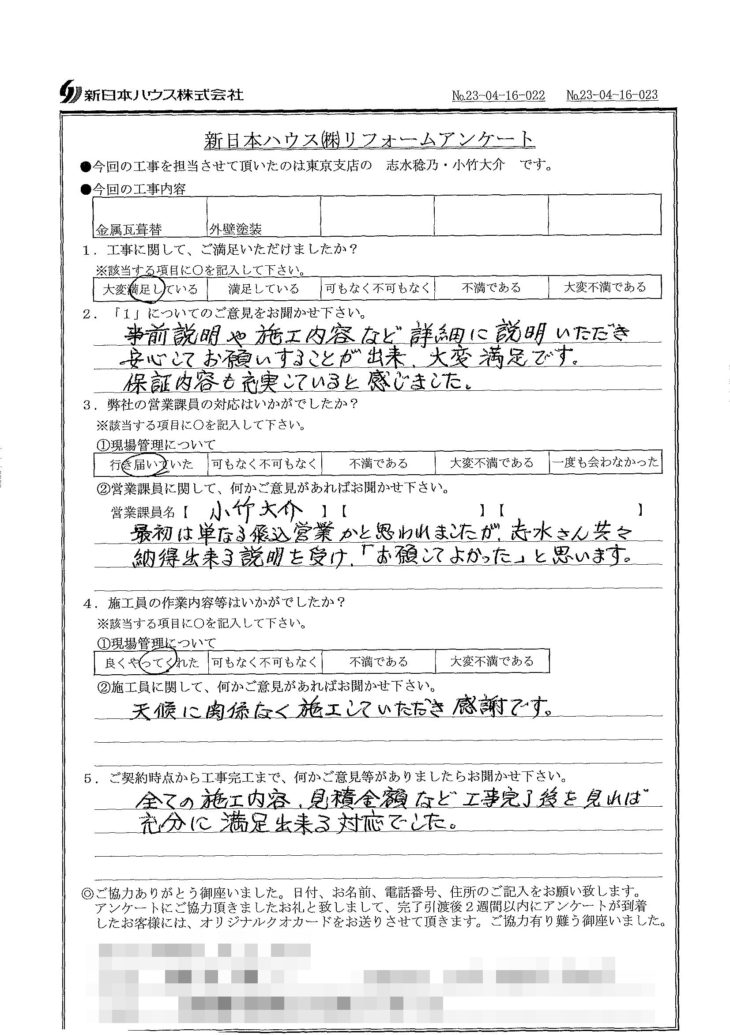 新日本ハウス株式会社
№23-04-16-022 №23-04-16-023
新日本ハウス㈱リフォームアンケート
●今回の工事を担当させて頂いたのは東京支店の 志水稔乃・小竹大介 です。
●今回の工事内容
金属瓦葺替 外壁塗装
1．工事に関して、ご満足いただけましたか？
※該当する項目に○を記入して下さい。
大変満足している 満足している 可もなく不可もなく 不満である 大変不満である
2．「1」についてのご意見をお聞かせ下さい。
事前説明や施工内容など詳細に説明いただき
安心してお願いすることが出来、大変満足です。
保証内容も充実していると感じました。
3．弊社の営業課員の対応はいかがでしたか？
※該当する項目に○を記入して下さい。
①現場管理について
行き届いていた 可もなく不可もなく 不満である 大変不満である 一度も会わなかった
②営業課員に関して、何かご意見があればお聞かせ下さい。
営業課員名【 小竹大介 】【 】【 】
最初は単なる飛込営業かと思われましたが、志水さん共々
納得出来る説明を受け、「お願してよかった」と思います。
4．施工員の作業内容等はいかがでしたか？
※該当する項目に○を記入して下さい。
①現場管理について
良くやってくれた 可もなく不可もなく 不満である 大変不満である
②施工員に関して、何かご意見があればお聞かせ下さい。
天候に関係なく施工していただき感謝です。
5．ご契約時点から工事完工まで、何かご意見等がありましたらお聞かせ下さい。
全ての施工内容、見積金額など工事完了後を見れば
充分に満足出来る対応でした。
◎ご協力ありがとう御座いました。日付、お名前、電話番号、住所のご記入をお願い致します。
アンケートにご協力頂きましたお礼と致しまして、完了引渡後２週間以内にアンケートが到着
したお客様には、オリジナルクオカードをお送りさせて頂きます。ご協力有り難う御座いました。